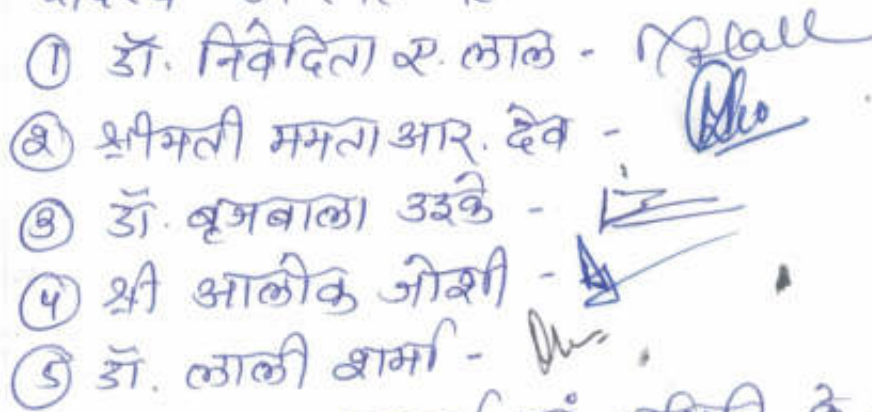 ① डॉ. निवेदिता ए. लाल -
② श्रीमती ममता आर. देव -
③ डॉ. बृजबाला उइके -
④ श्री आलोक जोशी -
⑤ डॉ. लाली शर्मा -